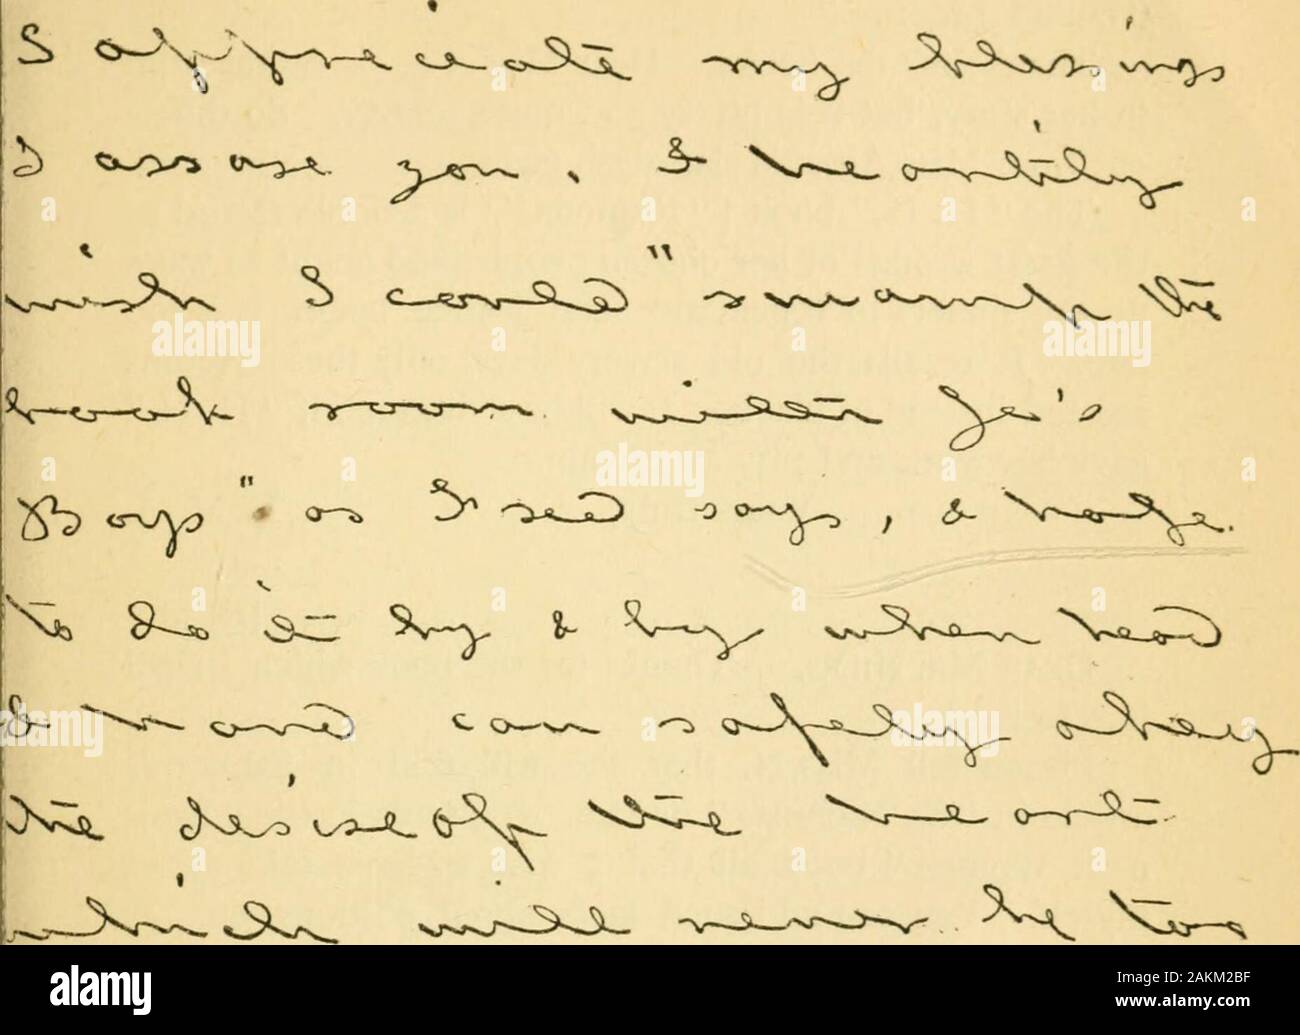 I appreciate my blessings
I assure you, & heartily
wish I could "swamp the
book room with Jo's
Boys" as Fred says, & hope
to do it by & by when head
& hand can safely obey
the desire of the heart
which will never be too
a
alamy
Image ID: 2AKM2BF
www.alamy.com